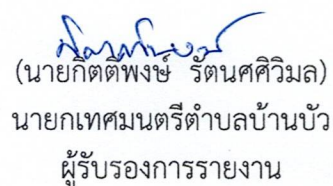 (นายกิตติพงษ์ รัตนศศิวิมล)
นายกเทศมนตรีตำบลบ้านบัว
ผู้รับรองการรายงาน